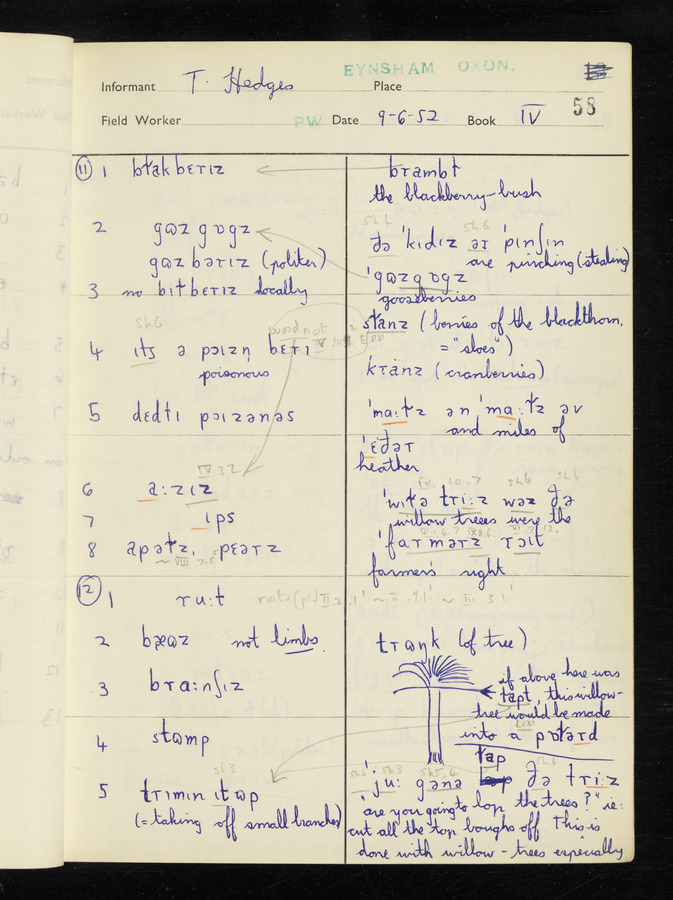 EYNSHAM OXON.
Informant T. Hedges Place
58
Field Worker PW Date 9-6-52 Book IV
⑪ 1 bɫakbɛɾɪz
2 gɷzgɒgz
gɷzbəɾɪz (politer)
3 no bɪɫbɛɾɪz locally
sh6
4 ɪts ə pɔɪzn̩ bɛɾɪ
poisonous
5 dɛdɫɪ pɔɪzənəs
IV 32
6 a:zɪz
7 ɪps
8 apəɫz, pɛəɾz
~ VIII 7.5
⑫ 1 ɾu:t
2 bæɷz not limbs
3 bɾa:nʃɪz
4 stɷmp
sh3
5 tɾɪmɪn ɪt ɷp
(= taking off small branches)
bɾambɫ
the blackberry-bush
ðə 'kɪdɪz əɾ 'pɪnʃɪn
are pinching (stealing)
'gɷzgɒgz
gooseberries
sɫanz (berries of the blackthorn,
= "sloes")
kɾanz (cranberries)
'ma:ɫz ən 'ma:ɫz əv
and miles of
'ɛðəɾ
heather
'wɪɫə tɾi:z wəz ðə
willow trees were the
'faɾməɾz ɾɔɪt
farmers' right
tɾɷŋk (of tree)
if above here was
tapt, this willow-
tree would be made
into a pɒɫəɾd
ɫap
'ju: gənə ðə tɾi:z
"are you going to lop the trees?" ie:
cut all the top boughs off. This is
done with willow-trees especially